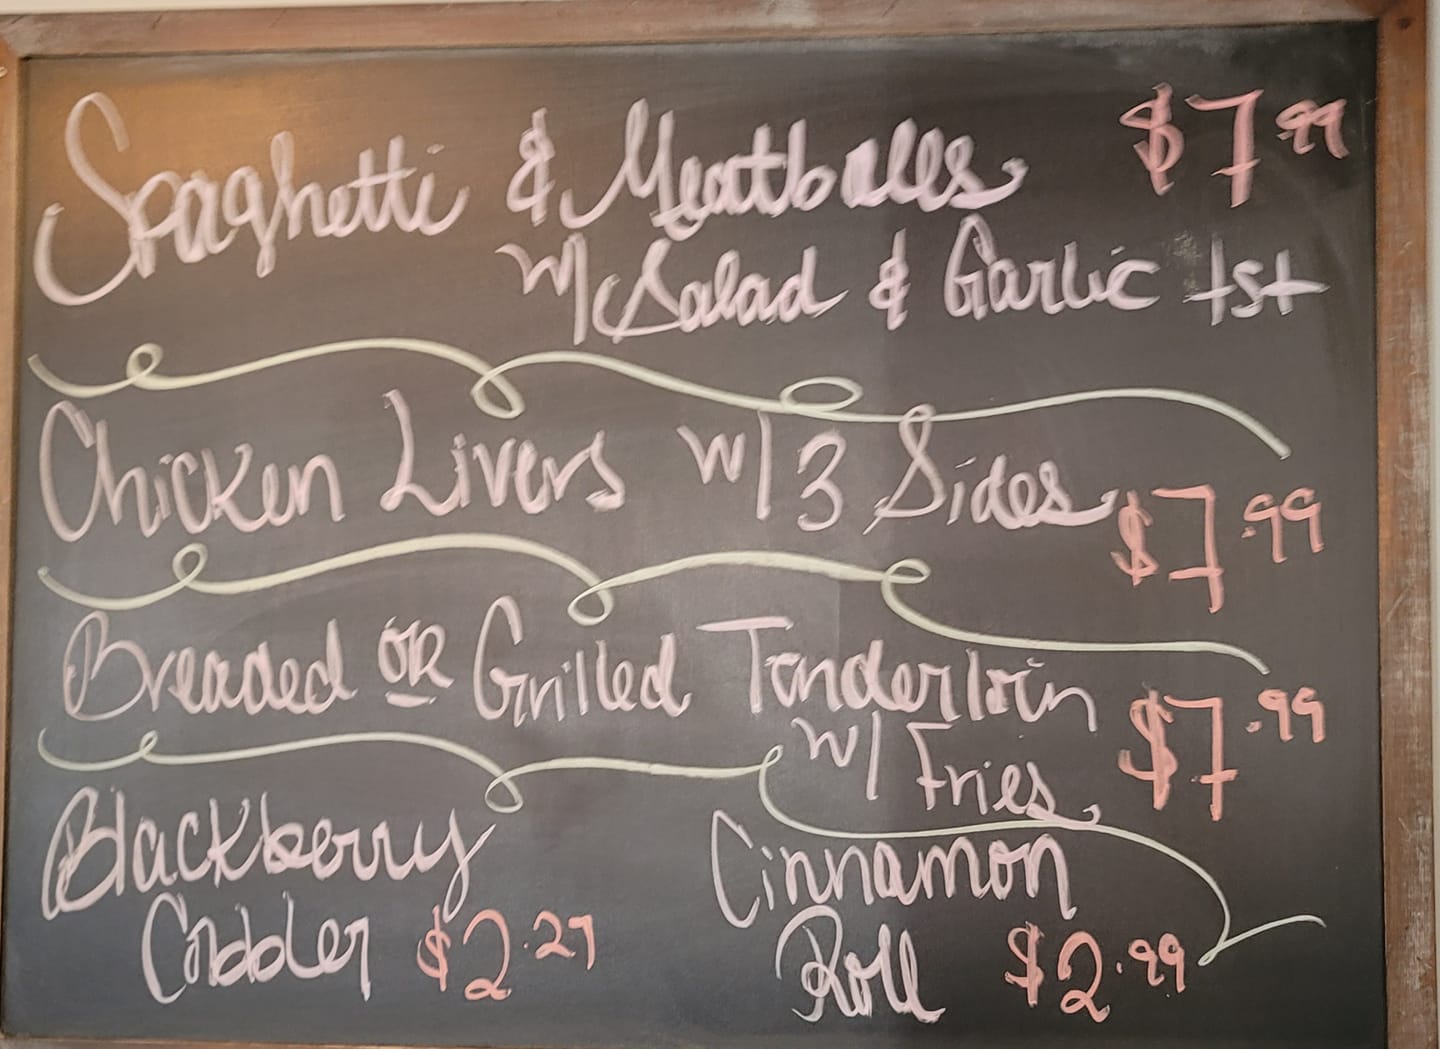 Spaghetti & Meatballs $7.99
w/ Salad & Garlic tst
Chicken Livers w/ 3 Sides $7.99
Breaded OR Grilled Tenderloin
w/ Fries $7.99
Blackberry
Cobbler $2.29
Cinnamon
Roll $2.99